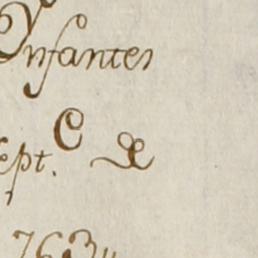 Infantes
C &
ept.
763